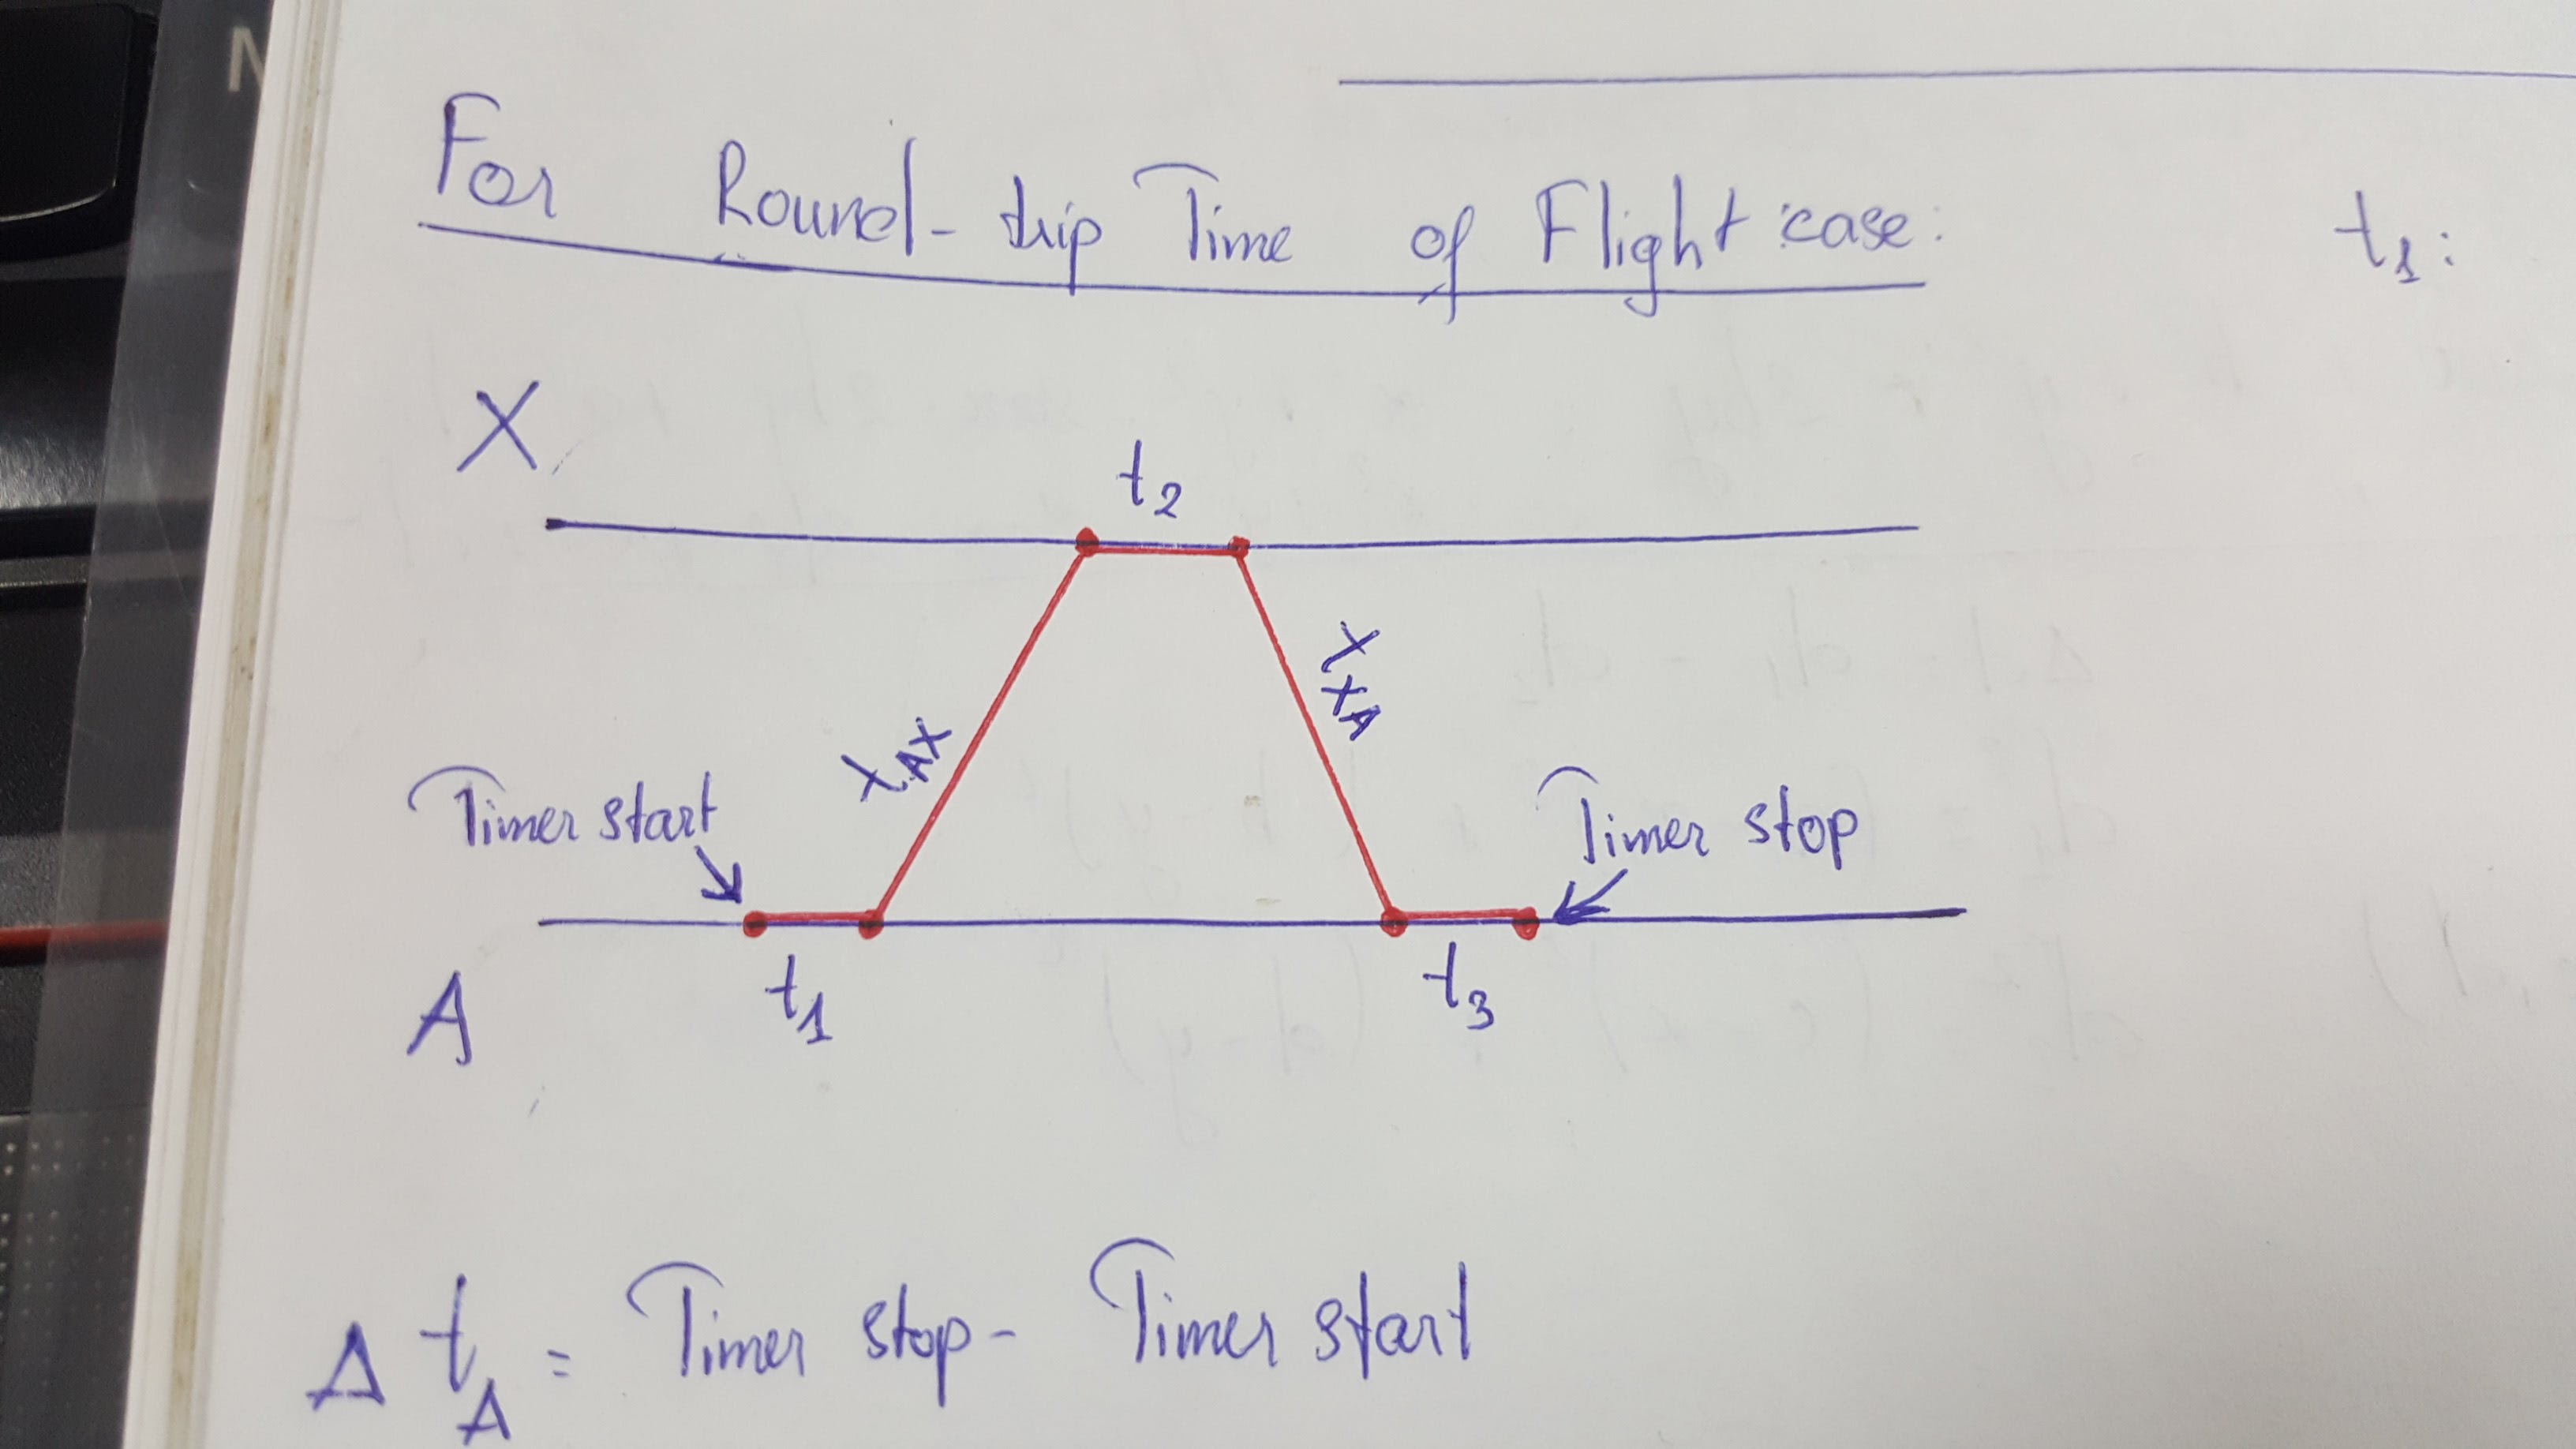 For Round-trip Time of Flight case:
t1:
X
t2
XAX
XXA
Timer start
Timer stop
t1
t3
A
Δ tA = Timer stop - Timer start